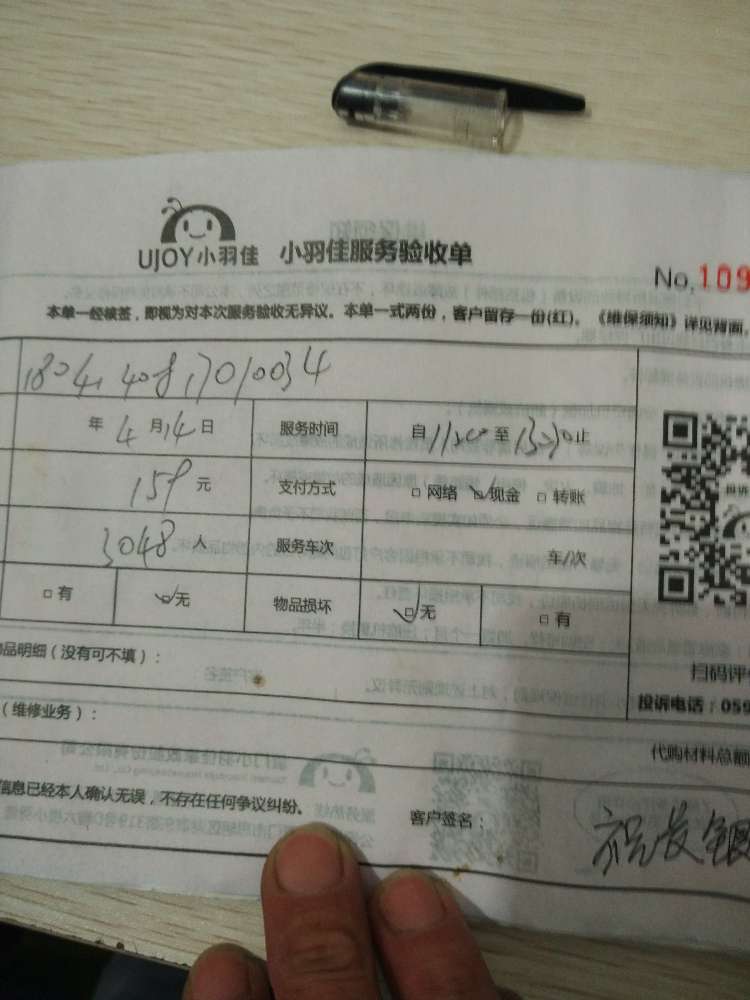 UJOY小羽佳 小羽佳服务验收单
No.109
本单一经核签，即视为对本次服务验收无异议。本单一式两份，客户留存一份(红)。《维保须知》详见背面。
年4月14日 服务时间 自 至 止
159元 支付方式 □网络 ☑现金 □转账
3048人 服务车次 车/次
□有 ☑无 物品损坏 ☑无 □有
品明细（没有可不填）：
扫码评
（维修业务）：
投诉电话：059
代购材料总额
信息已经本人确认无误，不存在任何争议纠纷。
客户签名：